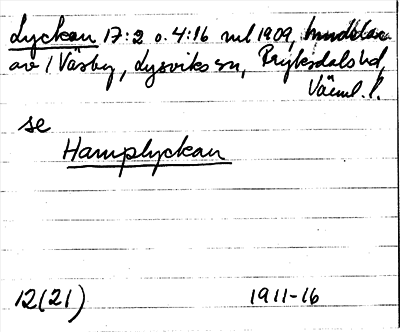 Lyckan 17:2 o. 4:16 enl 1909,
av 1 Väsby, Lysviks sn, Fryksdals hd,
Värml. l.
se
Hamplyckan
12(21) 1911-16